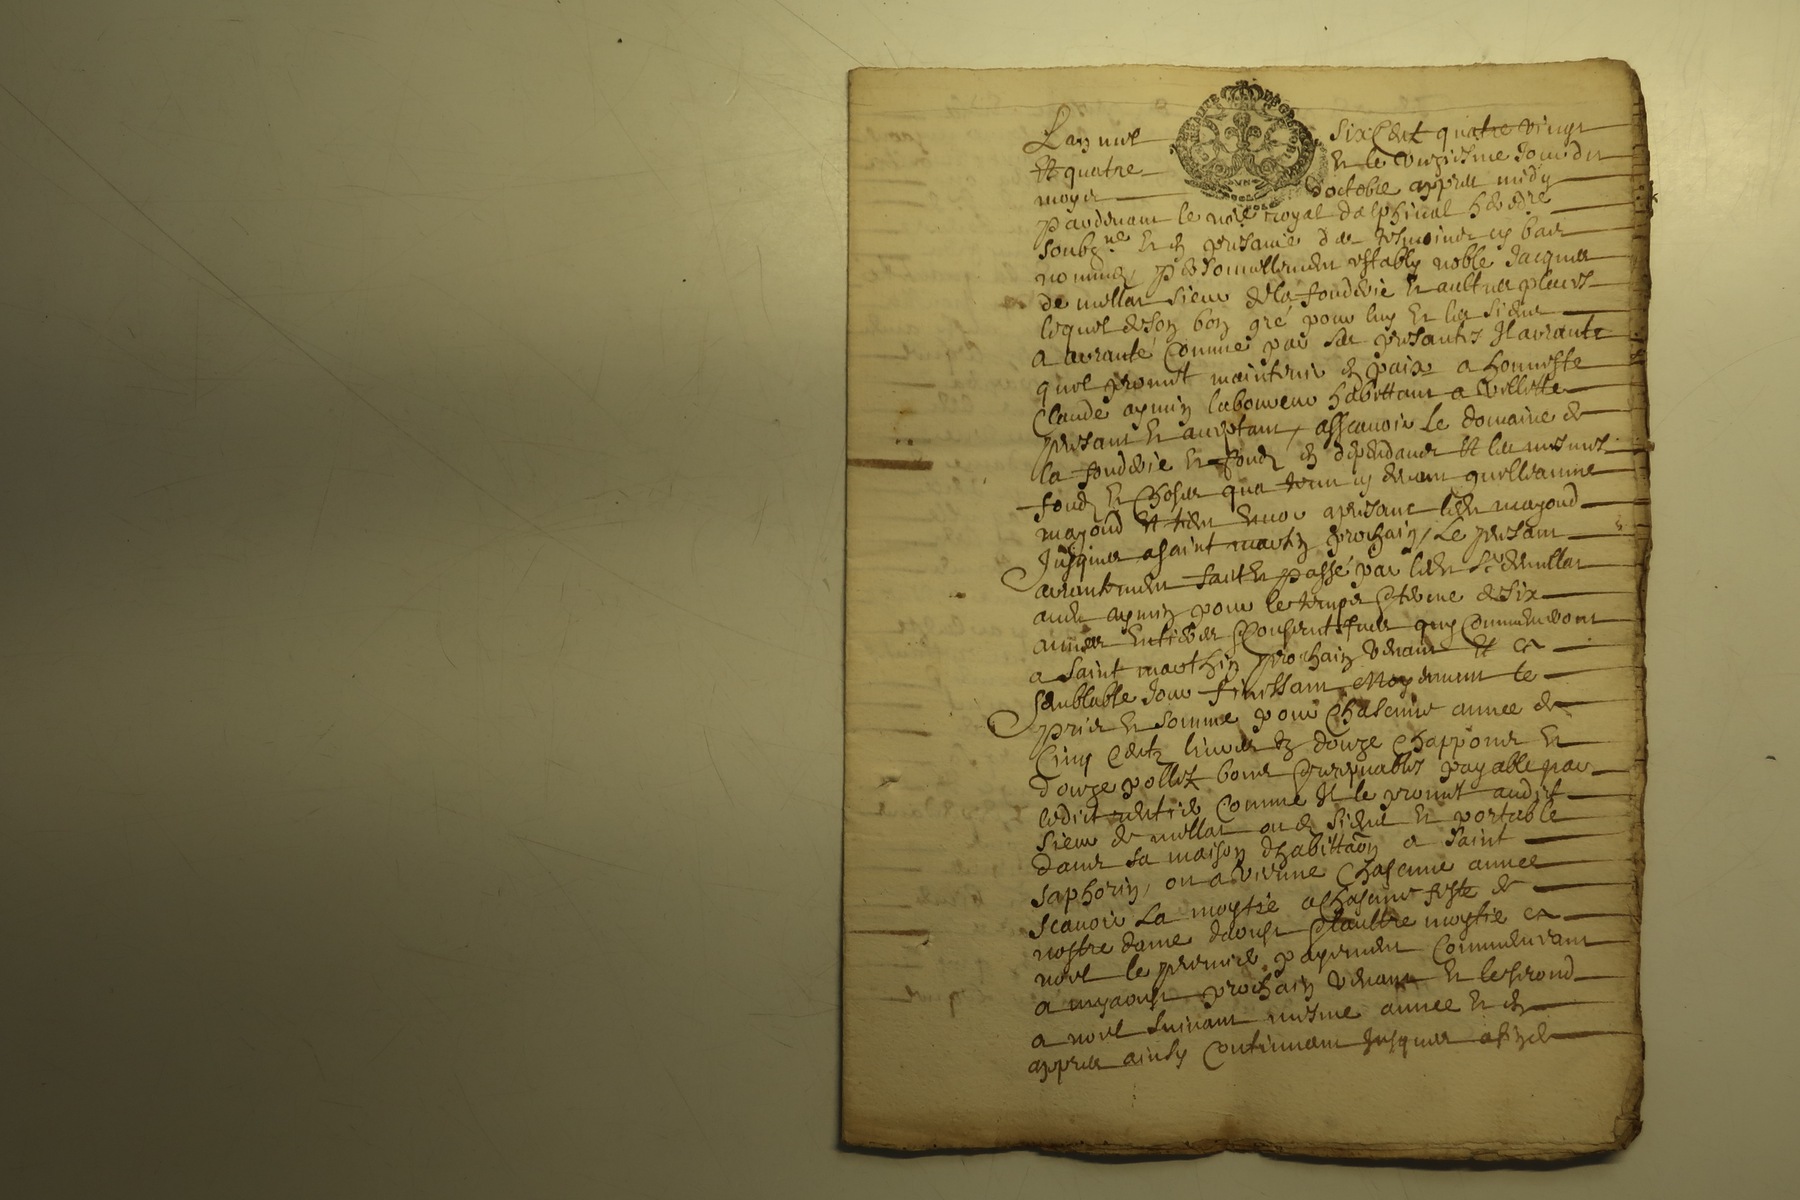 Lan mil six Cent quatre vingt
Et quatre Et le vingtiesme Jour du
moys doctobre appres midy
pardevant le nore royal dalphinal heredre
soubzne Et en presance des tesmoingz cy bas
nommez personnellement estably noble Jacques
de mellat sieur de la fonderie Et aultres places
lequel de son bon gré pour luy Et les siens
a arranté Comme par ses presantes Il arrante
quel promet maintenir en paix a honneste
Claude aymin laboureur habittant a villette
presant Et aceptant, assavoir Le domaine de
la fonderie Et fondz en dependant Et les mesmes
fondz Et Choses que tenu cy devant guilleaume
mayoud Et tient encor apresant led mayoud
Jusques a saint martin prochain, Le presant
arrantement fait Et passé par led Sr de mellat
aud aymin pour le temps Et terme de six
annees Entieres Consecutifves quy Commenceront
a saint marthin prochain venant Et a
semblable Jour finissant Moyenant le
pris Et somme pour Chascune annee de
Cinq Centz livres Et douze Chappons Et
douze polletz bons Et receptables payable par
ledict rentier Comme Il le promet audict
sieur de mellat ou es siens Et portable
dans sa maison dhabittaon a saint
saphorin, ou a vienne Chascune annee
scavoir La moytié a Chascune feste de
nostre dame daoust Et laultre moytie a
noel le premier payement Commencant
a my aoust prochain venant Et le segond
a noel suivant mesme annee Et en
appres ainsy Continuant Jusques a fin de